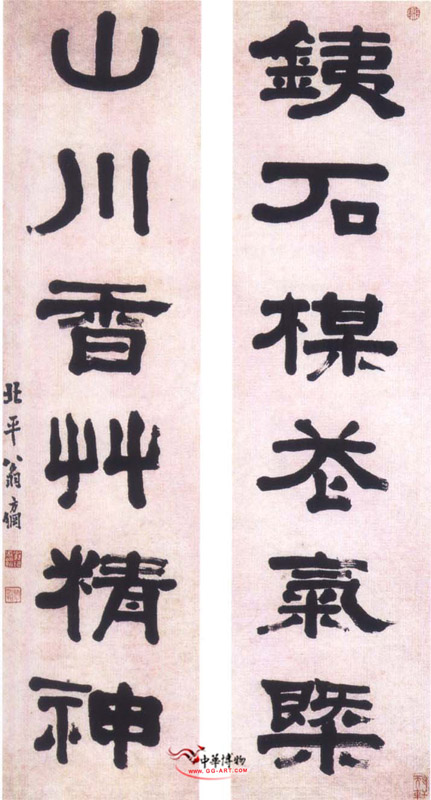 銕石楳花氣槩
山川香艸精神
北平翁方綱
中華博物
www.gg-art.com